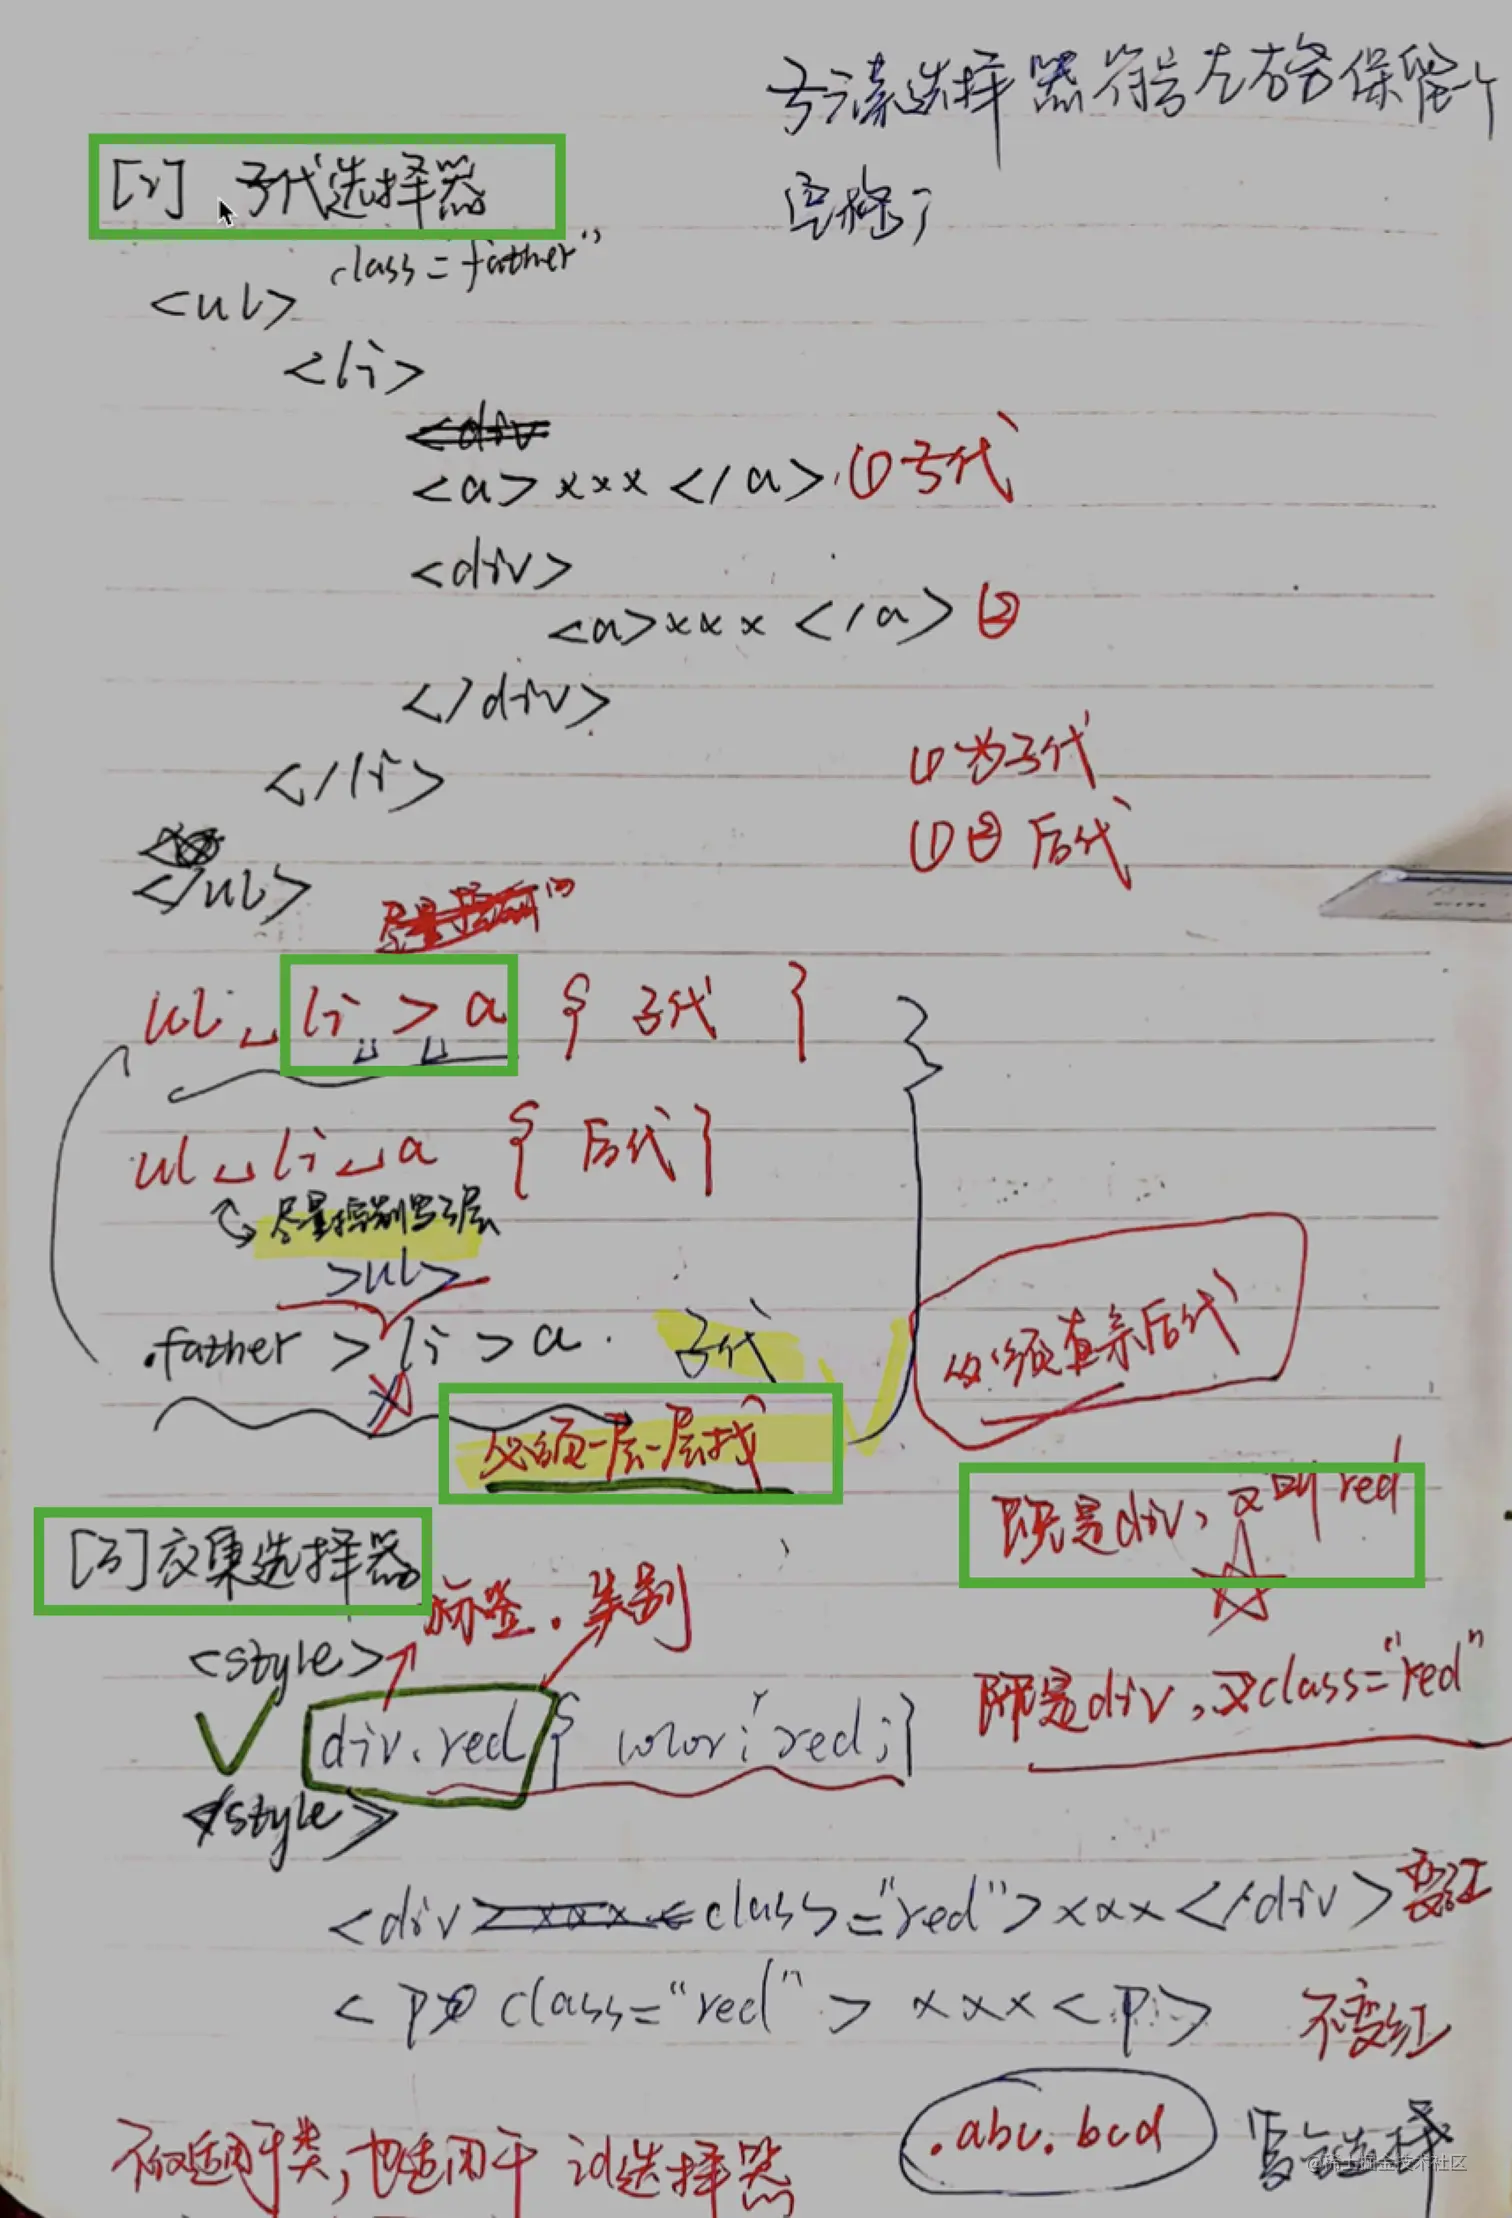 子元素选择器符号左右各保留一个
空格
[2] 子代选择器
class="father"
<ul>
<li>
<div
<a>xxx</a> ①子代
<div>
<a>xxx</a> ②
</div>
①为子代
</li>
①②后代
</ul>
ul li > a { 子代 }
ul li a { 后代 }
尽量控制写3层
>ul>
.father > li > a 子代
必须查亲后代
必须一层一层找
既是div，又叫red
[3]交集选择器
标签.类别
<style>
既是div，又class="red"
div.red{ color:red;}
</style>
<div class="red">xxx</div> 变红
<p class="red">xxx<p> 不变红
.abc.bcd
不仅适用于类，也适用于id选择器
@稀土掘金技术社区